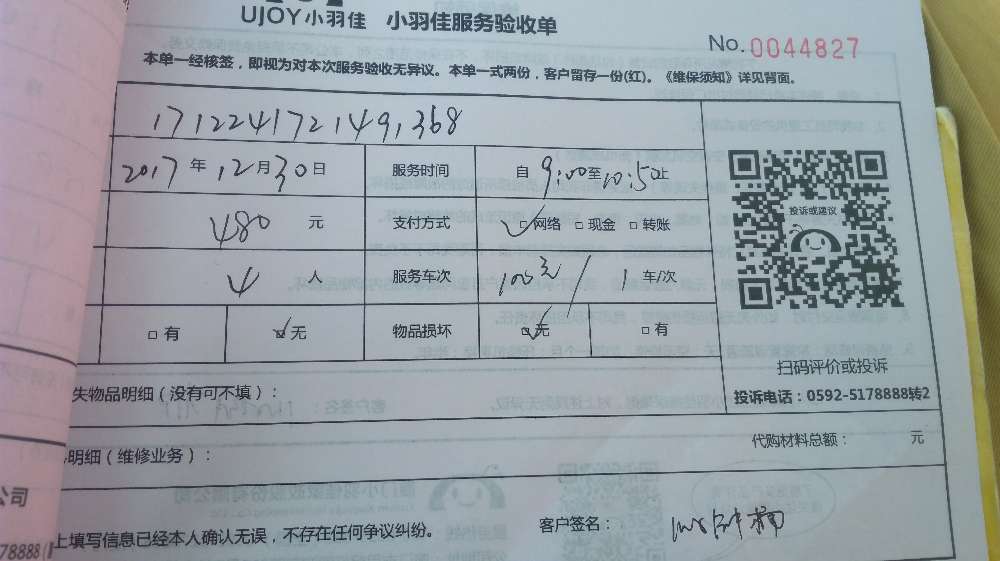 UJOY小羽佳 小羽佳服务验收单
No. 0044827
本单一经核签，即视为对本次服务验收无异议。本单一式两份，客户留存一份(红)。《维保须知》详见背面。
171224172149,368
2017年12月30日 服务时间 自9:00至10:50止
480元 支付方式 网络 现金 转账
4人 服务车次 100元/1车/次
有 无 物品损坏 无 有
投诉或建议
扫码评价或投诉
投诉电话：0592-5178888转2
失物品明细（没有可不填）：
代购材料总额： 元
明细（维修业务）：
公司
上填写信息已经本人确认无误，不存在任何争议纠纷。 客户签名：
78888